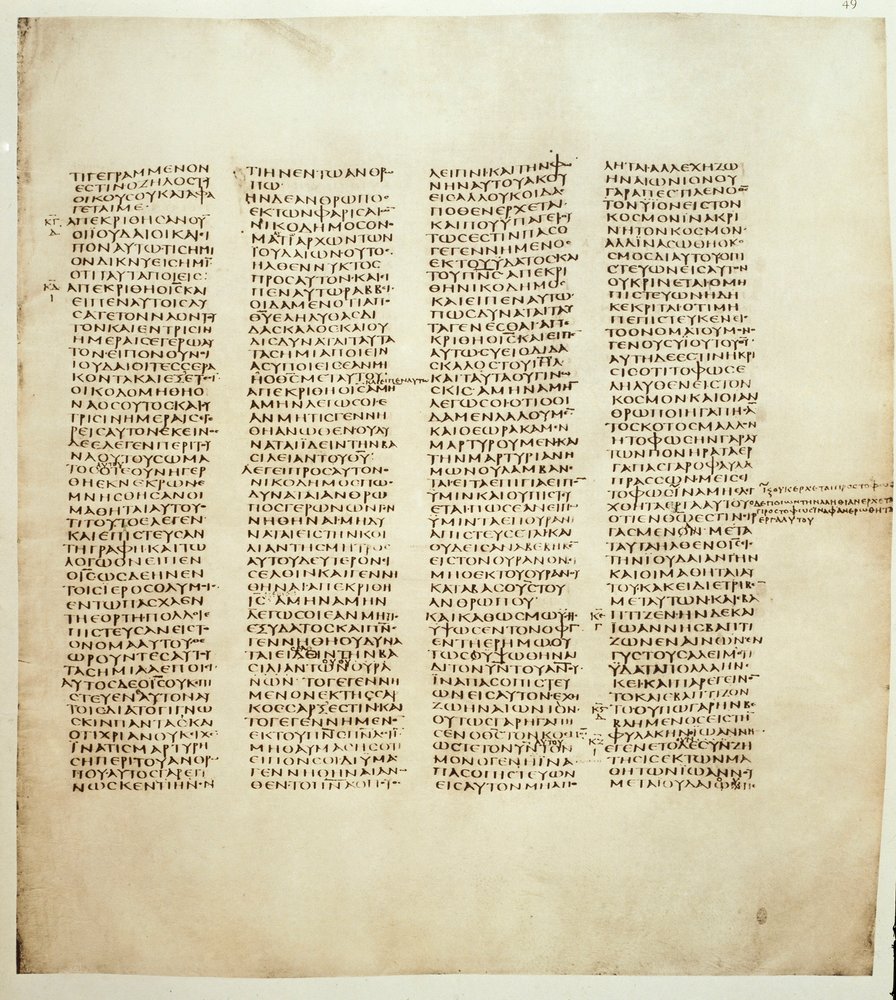 49
ΤΙΓΕΓΡΑΜΜΕΝΟΝ
ΕϹΤΙΝΟΖΗΛΟϹΤΥ
ΟΙΚΟΥϹΟΥΚΑΤΑΦΑ
ΓΕΤΑΙΜΕ
ΑΠΕΚΡΙΘΗϹΑΝΟΥ
ΟΙΙΟΥΔΑΙΟΙΚΑΙΙ
ΠΟΝΑΥΤΩΤΙϹΗΜΙ
ΟΝΔΙΚΝΥΕΙϹΗΜΙ
ΟΤΙΤΑΥΤΑΠΟΙΕΙϹ
ΑΠΕΚΡΙΘΗΙϹΚΑΙ
ΕΙΠΕΝΑΥΤΟΙϹΛΥ
ϹΑΤΕΤΟΝΝΑΟΝΤΥ
ΤΟΝΚΑΙΕΝΤΡΙϹΙΝ
ΗΜΕΡΑΙϹΕΓΕΡΩΑΥ
ΤΟΝΕΙΠΟΝΟΥΝΟΙ
ΙΟΥΔΑΙΟΙΤΕϹϹΕΡΑ
ΚΟΝΤΑΚΑΙΕΞΕΤΕΙ
ΟΙΚΟΔΟΜΗΘΗΟ
ΝΑΟϹΟΥΤΟϹΚΑΙϹΥ
ΤΡΙϹΙΝΗΜΕΡΑΙϹΕΓΕ
ΡΕΙϹΑΥΤΟΝΕΚΕΙΝΟϹ
ΔΕΕΛΕΓΕΝΠΕΡΙΤΟΥ
ΝΑΟΥΤΟΥϹΩΜΑ
ΤΟϹΟΤΕΟΥΝΗΓΕΡ
ΘΗΕΚΝΕΚΡΩΝΕ
ΜΝΗϹΘΗϹΑΝΟΙ
ΜΑΘΗΤΑΙΑΥΤΟΥ
ΤΙΤΟΥΤΟΕΛΕΓΕΝ
ΚΑΙΕΠΙϹΤΕΥϹΑΝ
ΤΗΓΡΑΦΗΚΑΙΤΩ
ΛΟΓΩΟΝΕΙΠΕΝ
ΟΙϹΩϹΔΕΗΝΕΝ
ΤΟΙϹΙΕΡΟϹΟΛΥΜΟΙ
ΕΝΤΩΠΑϹΧΑΕΝ
ΤΗΕΟΡΤΗΠΟΛΛΟΙΕ
ΠΙϹΤΕΥϹΑΝΕΙϹΤΟ
ΟΝΟΜΑΑΥΤΟΥΘΕ
ΩΡΟΥΝΤΕϹΑΥΤΟΥ
ΤΑϹΗΜΙΑΑΕΠΟΙΕΙ
ΑΥΤΟϹΔΕΟΙϹΟΥΚΕΠΙ
ϹΤΕΥΕΝΑΥΤΟΝΑΥ
ΤΟΙϹΔΙΑΤΟΓΙΓΝΩ
ϹΚΙΝΠΑΝΤΑϹΚΑΙ
ΟΤΙΧΡΙΑΝΟΥΚΙΧΕ
ΙΝΑΤΙϹΜΑΡΤΥΡΗ
ϹΗΠΕΡΙΤΟΥΑΝΟΥ
ΠΟΥΑΥΤΟϹΓΑΡΕΓΙ
ΝΩϹΚΕΝΤΙΗΝΕΝ
ΤΙΗΝΕΝΤΩΑΝΘΡ
ΠΩ
ΗΝΔΕΑΝΘΡΩΠΟϹ
ΕΚΤΩΝΦΑΡΙϹΑΙ
ΝΙΚΟΔΗΜΟϹΟΝΟ
ΜΑΤΙΑΡΧΩΝΤΩΝ
ΙΟΥΔΑΙΩΝΟΥΤΟϹ
ΗΛΘΕΝΝΥΚΤΟϹ
ΠΡΟϹΑΥΤΟΝΚΑΙΙ
ΠΕΝΑΥΤΩΡΑΒΒΙ
ΟΙΔΑΜΕΝΟΤΙΑΠΟ
ΘΥΕΛΗΛΥΘΑϹΔΙ
ΔΑϹΚΑΛΟϹΚΑΙΟΥ
ΔΙϹΔΥΝΑΤΑΙΤΑΥΤΑ
ΤΑϹΗΜΙΑΠΟΙΕΙΝ
ΑϹΥΠΟΙΕΙϹΕΑΝΜΗ
ΗΟΘϹΜΕΤΑΥΤΟΥ
ΚΑΙΕΙΠΕΝΑΥΤΩ
ΑΠΕΚΡΙΘΗΟΙϹΑΜΗ
ΑΜΗΝΛΕΓΩϹΟΙΕ
ΑΝΜΗΤΙϹΓΕΝΝΗ
ΘΗΑΝΩΘΕΝΟΥΔΥ
ΝΑΤΑΙΪΔΕΙΝΤΗΝΒΑ
ϹΙΛΕΙΑΝΤΟΥΘΥ
ΛΕΓΕΙΠΡΟϹΑΥΤΟΝ
ΝΙΚΟΔΗΜΟϹΠΩϹ
ΔΥΝΑΤΑΙΑΝΘΡΩ
ΠΟϹΓΕΡΩΝΩΝΓΕ
ΝΝΗΘΗΝΑΙΜΗΔΥ
ΝΑΤΑΙΕΙϹΤΗΝΚΟΙ
ΛΙΑΝΤΗϹΜΗΤΡΟϹ
ΑΥΤΟΥΔΕΥΤΕΡΟΝΙ
ϹΕΛΘΙΝΚΑΙΓΕΝΝΗ
ΘΗΝΑΙΑΠΕΚΡΙΘΗ
ΙϹΑΜΗΝΑΜΗΝ
ΛΕΓΩϹΟΙΕΑΝΜΗΤΙϹ
ΕΞΥΔΑΤΟϹΚΑΙΠΝϹ
ΓΕΝΝΗΘΗΟΥΔΥΝΑ
ΤΑΙΕΙΔΕΙΝΤΗΝΒΑ
ϹΙΛΙΑΝΤΩΝΟΥΡΑ
ΝΩΝΤΟΓΕΓΕΝΝΗ
ΜΕΝΟΝΕΚΤΗϹϹΑΡ
ΚΟϹϹΑΡΞΕϹΤΙΝΚΑΙ
ΤΟΓΕΓΕΝΝΗΜΕΝΟ
ΕΚΤΟΥΠΝϹΠΝΑΕϹΤΙ
ΜΗΘΑΥΜΑϹΗϹΟΤΙ
ΕΙΠΟΝϹΟΙΔΙΥΜΑϹ
ΓΕΝΝΗΘΗΝΑΙΑΝΩ
ΘΕΝΤΟΠΝΑΟΠΟΥ
ΛΕΙΠΝΙΚΑΙΤΗΝΦΩ
ΝΗΝΑΥΤΟΥΑΚΟΥ
ΕΙϹΑΛΛΟΥΚΟΙΔΑϹ
ΠΟΘΕΝΕΡΧΕΤΑΙ
ΚΑΙΠΟΥΥΠΑΓΕΙΟΥ
ΤΩϹΕϹΤΙΝΠΑϹΟ
ΓΕΓΕΝΝΗΜΕΝΟϹ
ΕΚΤΟΥΥΔΑΤΟϹΚΑΙ
ΤΟΥΠΝϹΑΠΕΚΡΙ
ΘΗΝΙΚΟΔΗΜΟϹ
ΚΑΙΕΙΠΕΝΑΥΤΩ
ΠΩϹΔΥΝΑΤΑΙΤΑΥ
ΤΑΓΕΝΕϹΘΑΙΑΠΕ
ΚΡΙΘΗΟΙϹΚΑΙΕΙΠΕ
ΑΥΤΩϹΥΕΙΟΔΙΔΑ
ϹΚΑΛΟϹΤΟΥΙΗΛ
ΚΑΙΤΑΥΤΑΟΥΓΙΝΩ
ϹΚΙϹΑΜΗΝΑΜΗΝ
ΛΕΓΩϹΟΙΟΤΙΟΟΙ
ΔΑΜΕΝΛΑΛΟΥΜΕΝ
ΚΑΙΟΕΩΡΑΚΑΜΕΝ
ΜΑΡΤΥΡΟΥΜΕΝΚΑΙ
ΤΗΝΜΑΡΤΥΡΙΑΝΗ
ΜΩΝΟΥΛΑΜΒΑΝΕ
ΤΑΙΕΙΤΑΕΠΙΓΙΑΕΙΠΟ
ΥΜΙΝΚΑΙΟΥΠΙϹΤΕΥ
ΕΤΑΙΠΩϹΕΑΝΕΙΠΩ
ΥΜΙΝΤΑΕΠΟΥΡΑΝΙ
ΑΠΙϹΤΕΥϹΕΤΑΙΚΑΙ
ΟΥΔΕΙϹΑΝΑΒΕΒΗΚΕ
ΕΙϹΤΟΝΟΥΡΑΝΟΝΕΙ
ΜΗΟΕΚΤΟΥΟΥΡΑΝΟΥ
ΚΑΤΑΒΑϹΟΥϹΤΟΥ
ΑΝΘΡΩΠΟΥ
ΚΑΙΚΑΘΩϹΜΩΥϹΗϹ
ΥΨΩϹΕΝΤΟΝΟΦΙ
ΕΝΤΗΕΡΗΜΩΟΥ
ΤΩϹΥΨΩΘΗΝΑΙ
ΔΙΤΟΝΥΝΤΟΥΑΝΟΥ
ΙΝΑΠΑϹΟΠΙϹΤΕΥ
ΩΝΕΙϹΑΥΤΟΝΕΧΗ
ΖΩΗΝΑΙΩΝΙΟΝ
ΟΥΤΩϹΓΑΡΗΓΑΠΗ
ϹΕΝΟΘϹΤΟΝΚΟϹΜΟ
ΩϹΤΕΤΟΝΥΝΤΟΝ
ΜΟΝΟΓΕΝΗΙΝΑ
ΠΑϹΟΠΙϹΤΕΥΩΝ
ΕΙϹΑΥΤΟΝΜΗΑΠΟ
ΛΗΤΑΙΑΛΛΕΧΗΖΩ
ΗΝΑΙΩΝΙΟΝΟΥ
ΓΑΡΑΠΕϹΤΙΛΕΝΟΘϹ
ΤΟΝΥΙΟΝΕΙϹΤΟΝ
ΚΟϹΜΟΝΙΝΑΚΡΙ
ΝΗΤΟΝΚΟϹΜΟΝ
ΑΛΛΙΝΑϹΩΘΗΟΚΟ
ϹΜΟϹΔΙΑΥΤΟΥΟΠΙ
ϹΤΕΥΩΝΕΙϹΑΥΤΟΝ
ΟΥΚΡΙΝΕΤΑΙΟΜΗ
ΠΙϹΤΕΥΩΝΗΔΗ
ΚΕΚΡΙΤΑΙΟΤΙΜΗ
ΠΕΠΙϹΤΕΥΚΕΝΕΙϹ
ΤΟΟΝΟΜΑΤΟΥΜΟΝΟ
ΓΕΝΟΥϹΥΙΟΥΤΟΥΘΥ
ΑΥΤΗΔΕΕϹΤΙΝΗΚΡΙ
ϹΙϹΟΤΙΤΟΦΩϹΕ
ΛΗΛΥΘΕΝΕΙϹΤΟΝ
ΚΟϹΜΟΝΚΑΙΟΙΑΝ
ΘΡΩΠΟΙΗΓΑΠΗϹΑ
ΤΟϹΚΟΤΟϹΜΑΛΛΟΝ
ΗΤΟΦΩϹΗΝΓΑΡΑΥ
ΤΩΝΠΟΝΗΡΑΤΑΕΡ
ΓΑΠΑϹΓΑΡΟΦΑΥΛΑ
ΠΡΑϹϹΩΝΜΕΙϹΕΙ
ΤΟΦΩϹΙΝΑΜΗΕΛΕΓ
ΧΘΗΤΑΕΡΓΑΑΥΤΟΥ
ΟΤΙΕΝΘΩΕϹΤΙΝΕΙΡ
ΓΑϹΜΕΝΟΝΜΕΤΑ
ΤΑΥΤΑΗΛΘΕΝΟΙϹΕΙ
ΤΗΝΙΟΥΔΑΙΑΝΓΗΝ
ΚΑΙΟΙΜΑΘΗΤΑΙΑΥ
ΤΟΥΚΑΚΕΙΔΙΕΤΡΙΒΕ
ΜΕΤΑΥΤΩΝΚΑΙΕΒΑ
ΠΤΙΖΕΝΗΝΔΕΚΑΙ
ΙΩΑΝΝΗϹΒΑΠΤΙ
ΖΩΝΕΝΑΙΝΩΝΕΝ
ΓΥϹΤΟΥϹΑΛΕΙΜΟΤΙ
ΥΔΑΤΑΠΟΛΛΑΗΝΕ
ΚΕΙΚΑΙΠΑΡΕΓΕΙΝΟ
ΤΟΚΑΙΕΒΑΠΤΙΖΟΝ
ΤΟΟΥΠΩΓΑΡΗΝΒΕ
ΒΛΗΜΕΝΟϹΕΙϹΤΗ
ΦΥΛΑΚΗΝΙΩΑΝΝΗϹ
ΕΓΕΝΕΤΟΔΕϹΥΝΖΗ
ΤΗϹΙϹΕΚΤΩΝΜΑ
ΘΗΤΩΝΙΩΑΝΝΟΥ
ΜΕΤΑΙΟΥΔΑΙΟΥΠΕ